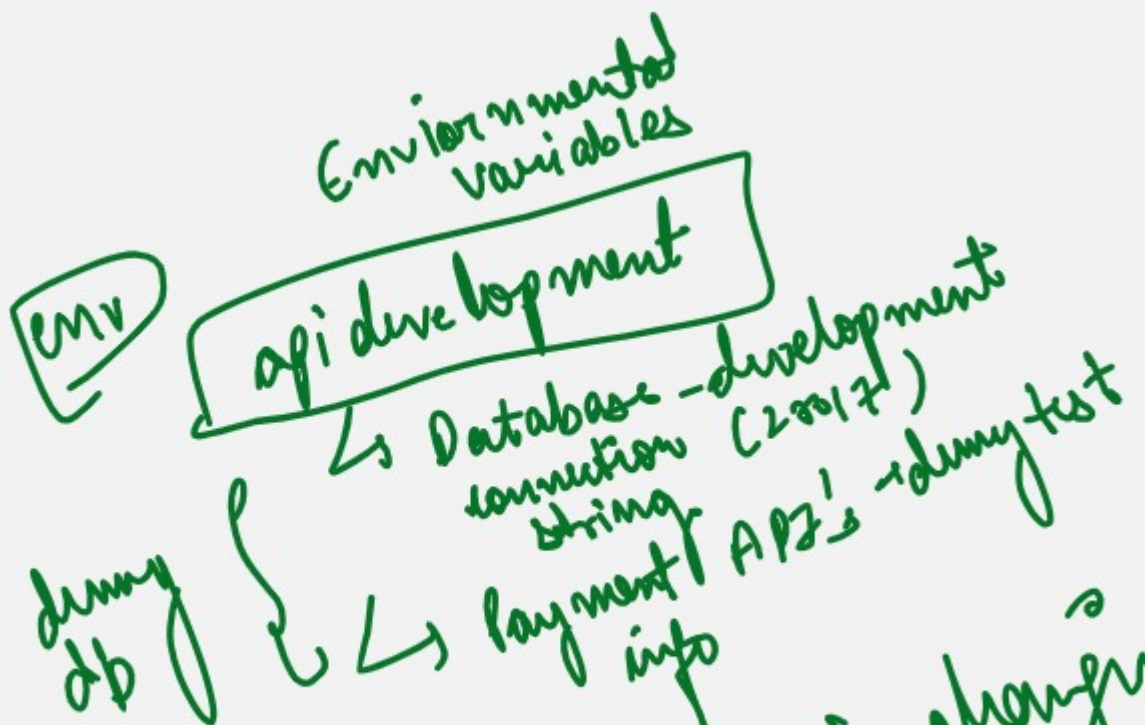 Enviornmental
variables
env
api development
↳ Database - development
connection (27017)
string
dummy
db
↳ Payment API's → dummy test
info